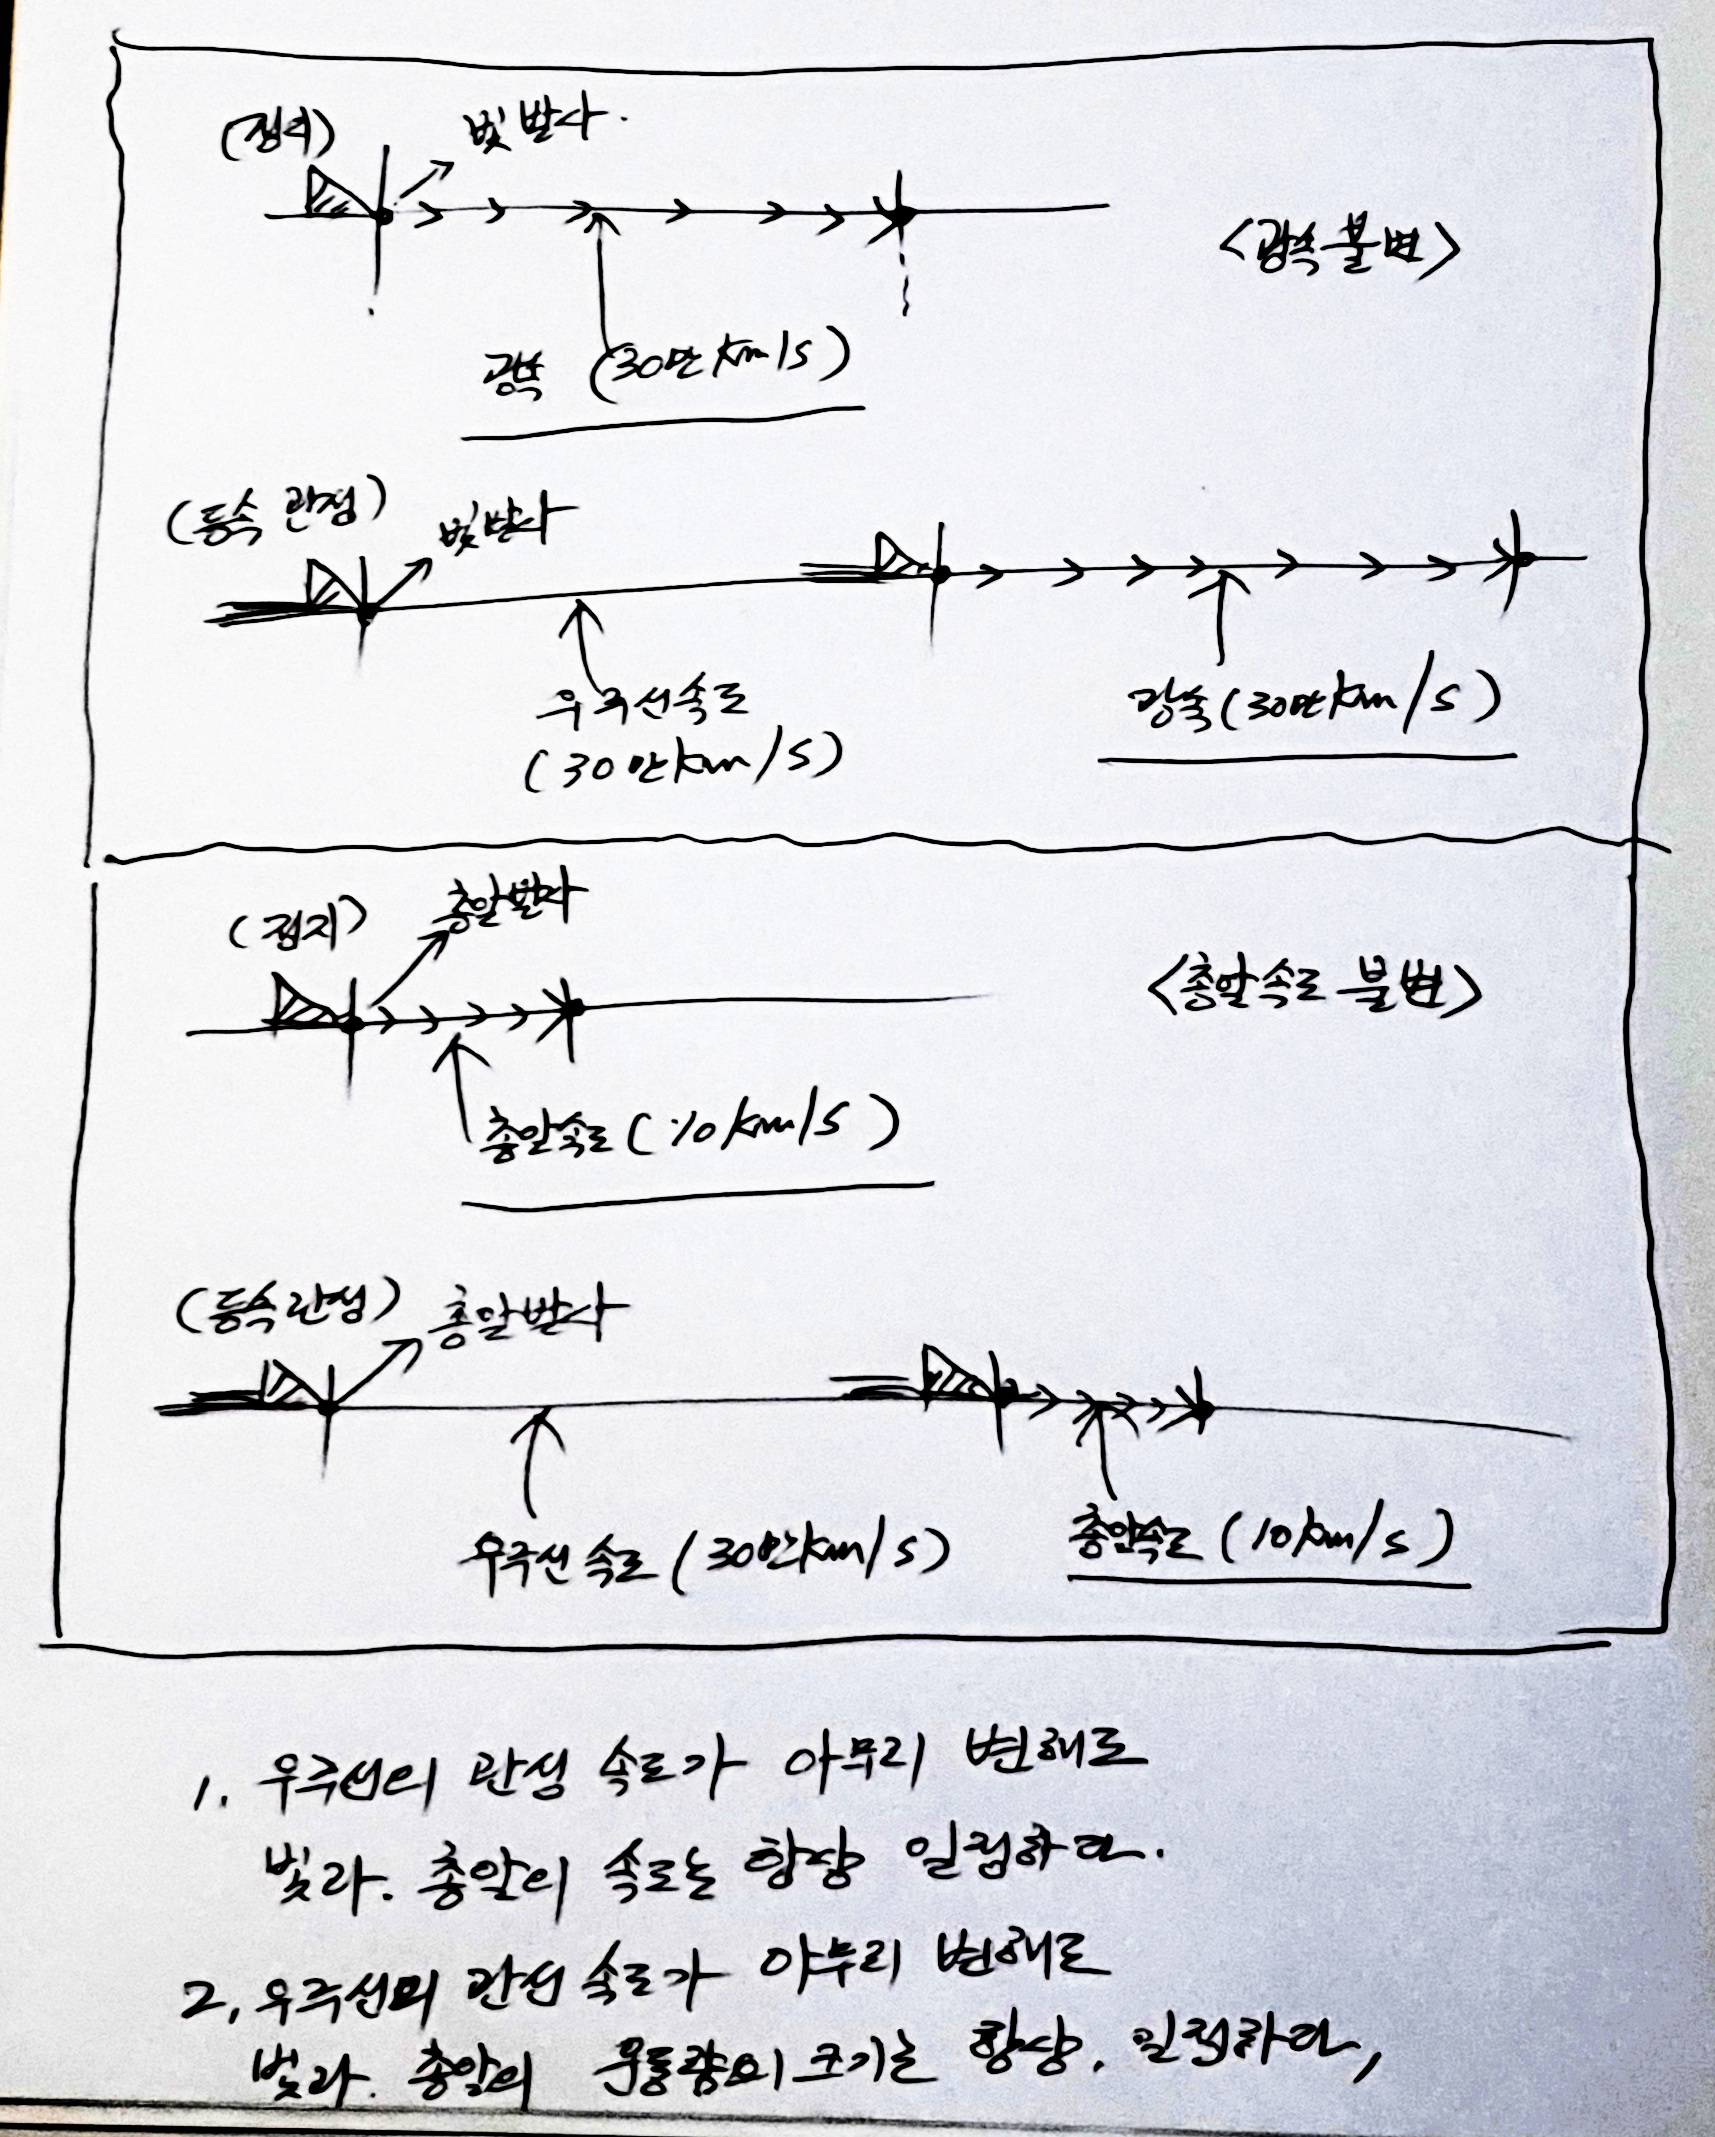 (정지)
빛 발사.
<광속 불변>
광속 (30만 km/s)
(등속 관점)
빛 발사
우주선속도
(30만 km/s)
광속 (30만 km/s)
(정지)
총알발사
<총알속도 불변>
총알속도 (10 km/s)
(등속관성)
총알발사
우주선 속도 (30만 km/s)
총알속도 (10 km/s)
1. 우주선의 관성 속도가 아무리 변해도
빛과. 총알의 속도는 항상 일정하다.
2. 우주선의 관성 속도가 아무리 변해도
빛과. 총알의 운동량의 크기는 항상. 일정하다,